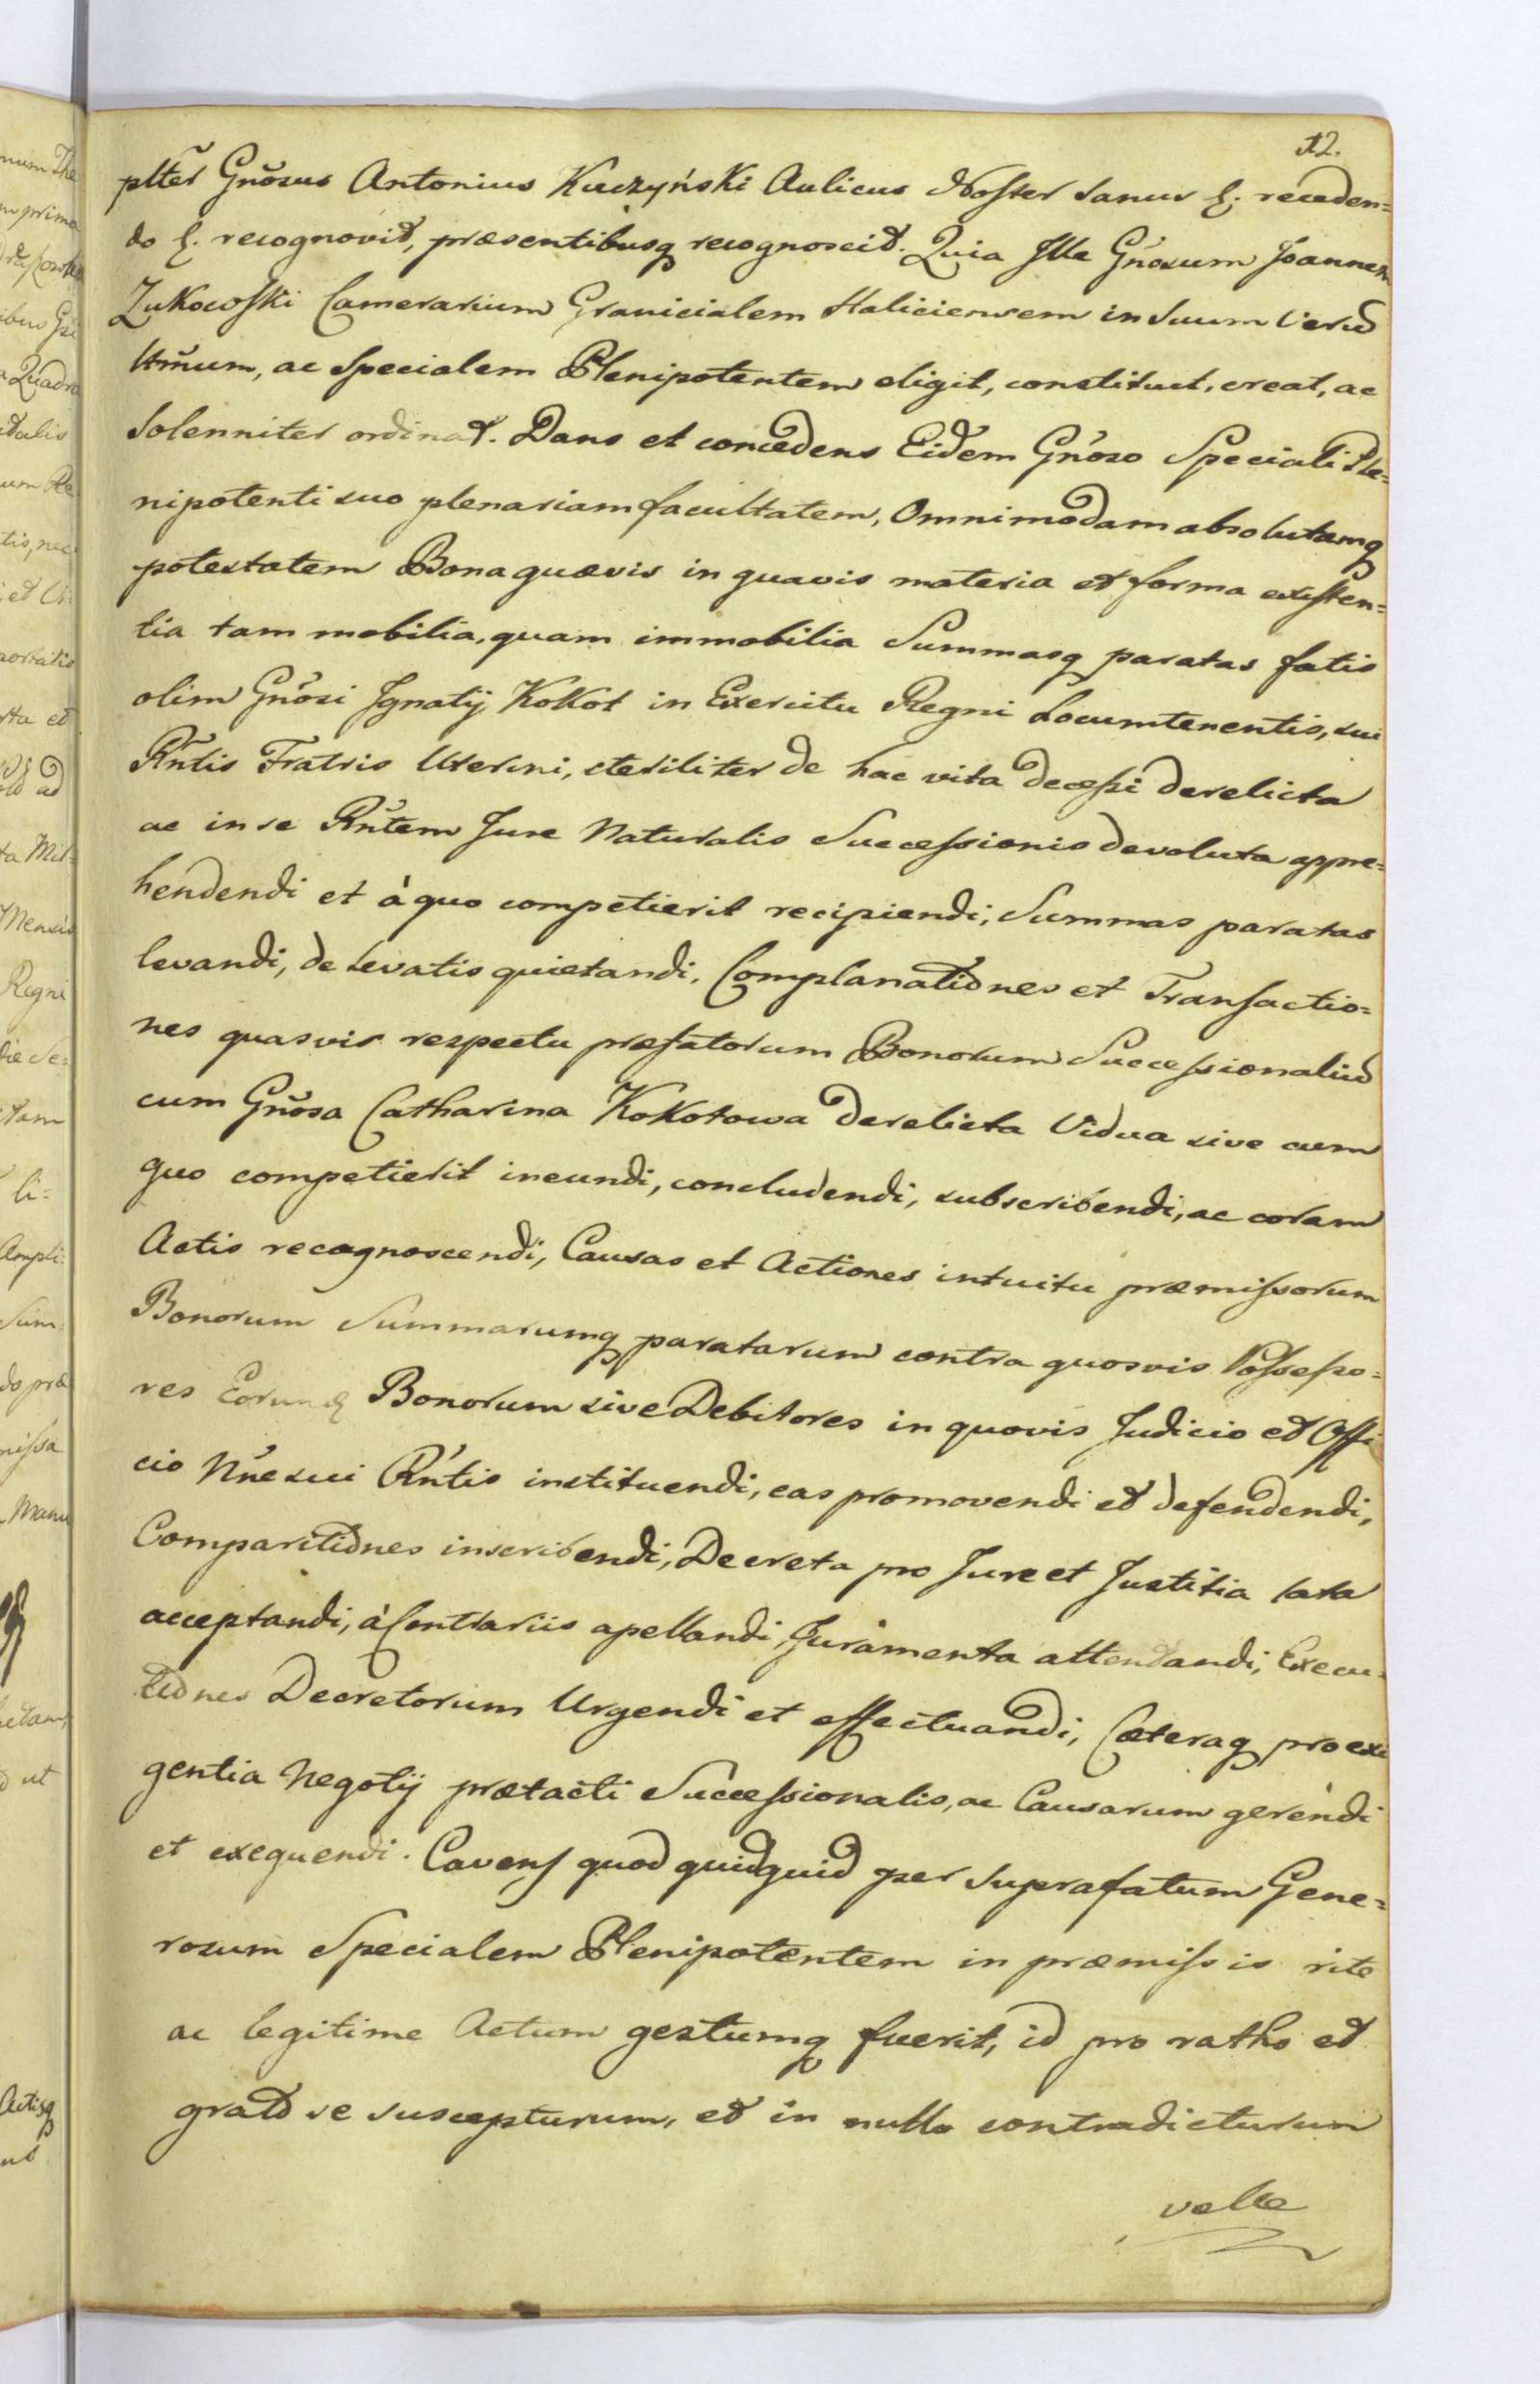 12.
pltẽr Gnõsus Antonius Kuczyński Aulicus Noster Sanus &. receden=
do &. recognovit, præsentibusq recognoscit. Quia Ille Gnõsum Joannem
Zukowski Camerarium Granicialem Haliciensem in Suum Verũ
Ltmũm, ac Specialem Plenipotentem eligit, constituit, creat, ac
Solenniter ordinat. Dans et concedens Eidem Gnõso Speciali Ple=
nipotenti suo plenariam facultatem, Omnimodam absolutamq
potestatem Bona quævis in quavis materia et forma existen=
tia tam mobilia, quam immobilia Summasq paratas fatis
olim Gnõsi Ignatij Kokot in Exercitu Regni Locumtenentis, sui
Rñtis Fratris Uterini, steriliter de hac vita decessi derelicta
ac in se Rñtem Jure Naturalis Successionis devoluta appre=
hendendi et à quo competierit recipiendi, Summas paratas
levandi, de levatis quietandi, Complanatiões et Transactio=
nes quasvis respectu præfatorum Bonorum Successionaliũ
cum Gnõsa Catharina Kokotowa derelicta Vidua sive cum
quo competierit ineundi, concludendi, subscribendi, ac coram
Actis recognoscendi, Causas et Actiones intuitu præmissorum
Bonorum Summarumq paratarum contra quosvis Possesso=
res Eorundẽ Bonorum sive Debitores in quovis Judicio et Offi
cio Nñe sui Rñtis instituendi, eas promovendi et defendendi,
Comparitiões inscribendi, Decreta pro Jure et Justitia lata
acceptandi, à Contrariis apellandi, Juramenta attendandi, Execu=
tiões Decretorum Urgendi et effectuandi, Cæteraq pro exi
gentia Negotij prætacti Successionalis, ac Causarum gerendi
et exequendi. Cavens quod quidquid per Suprafatum Gene=
rosum Specialem Plenipotentem in præmissis rite
ac legitime Actum gestumq fuerit, id pro ratho et
grato se suscepturum, et in nullo contradicturum
velle